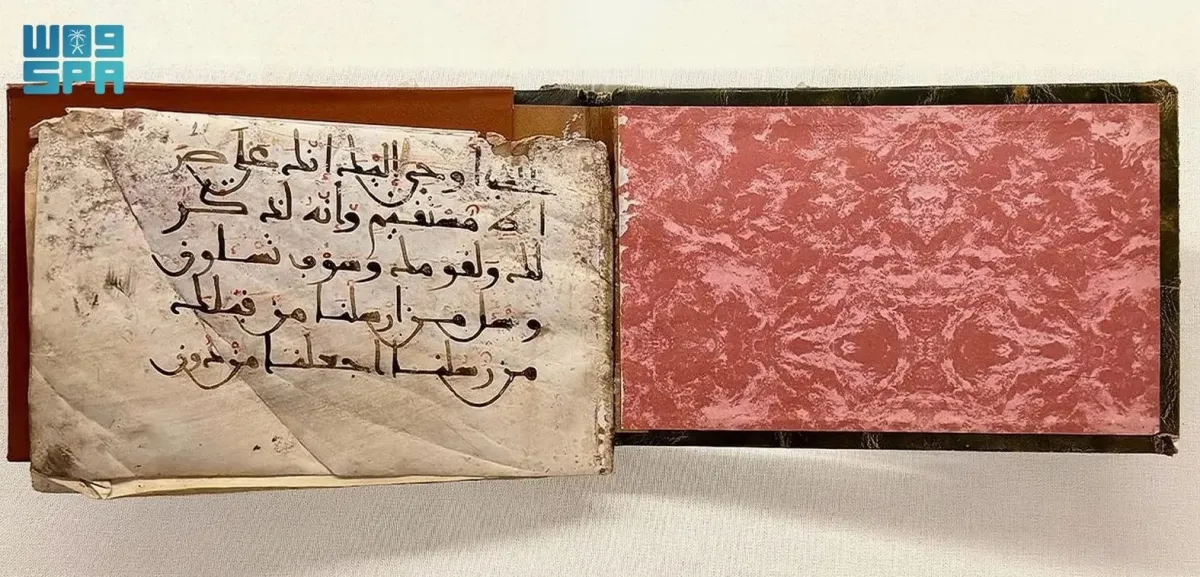 واس
SPA
بالذي أوحي إليك إنك علي صر
اط مستقيم وإنه لذكر
لك ولقومك وسوف تسلون
وسل من ارسلنا من قبلك
من رسلنا اجعلنا من دون